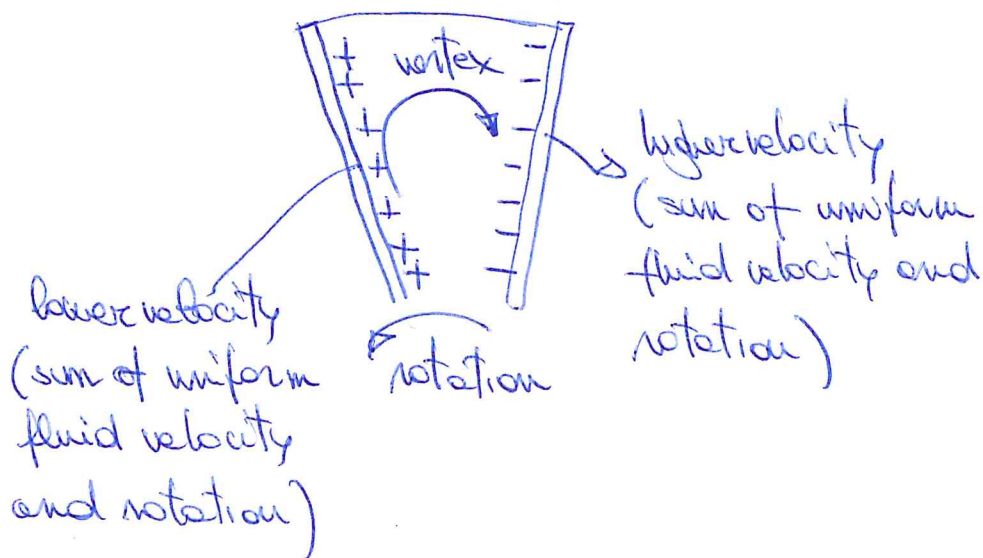 vortex
+ + + + + + +
- - - - - - -
higher velocity
(sum of uniform
fluid velocity and
rotation)
lower velocity
(sum of uniform
fluid velocity
and rotation)
rotation